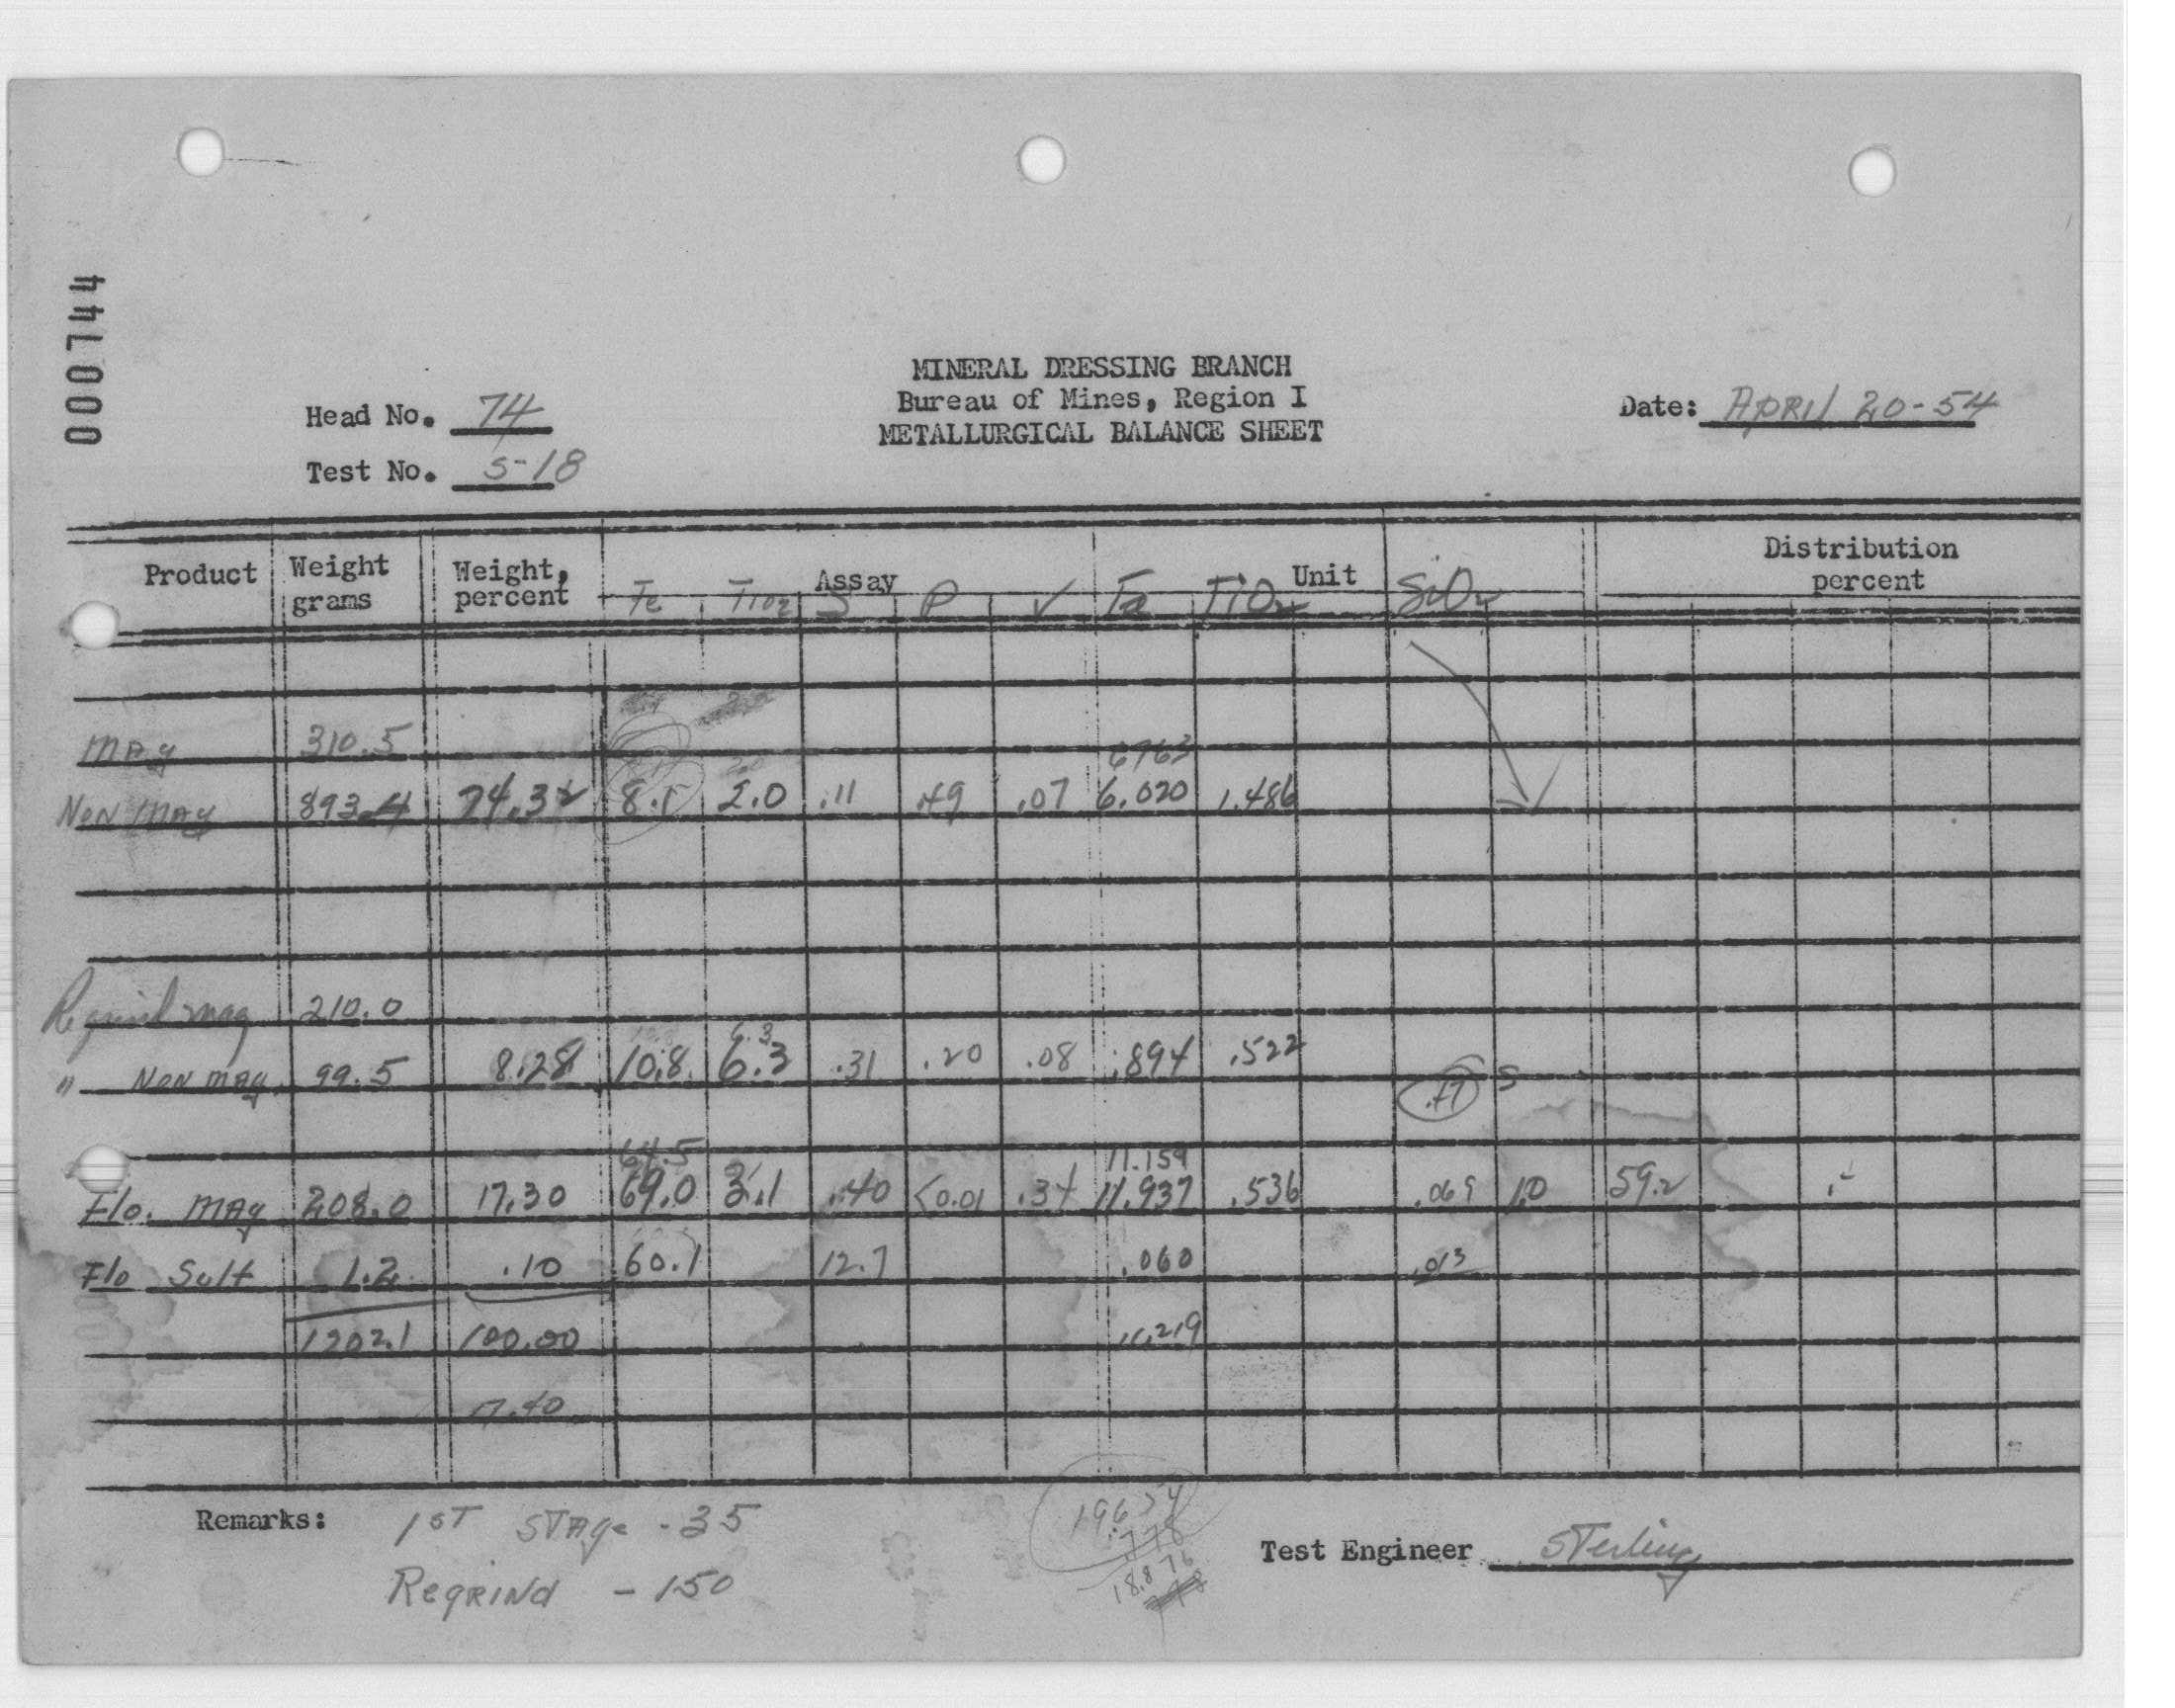 000744
MINERAL DRESSING BRANCH
Bureau of Mines, Region I
METALLURGICAL BALANCE SHEET
Head No. 74
Test No. S-18
Date: April 20-54
Product Weight grams Weight, percent Assay Unit Distribution percent
Fe TiO2 S P V Fe TiO2 SiO2
Mag 310.5
6763
Non Mag 893.4 74.32 8.1 2.0 .11 .49 .07 6.020 1.486
Regrind mag 210.0
6.3
" Non mag. 99.5 8.28 10.8 6.3 .31 .20 .08 .894 .522
S
64.5 11.159
Flo. Mag 208.0 17.30 69.0 3.1 .40 <0.01 .34 11.937 .536 .069 1.0 59.2
Flo Sulf 1.2 .10 60.1 12.7 .060 .013
1202.1 100.00 11.219
17.40
Remarks: 1ST STAGE -35
Regrind -150
19.654
.778
18.876
Test Engineer Sterling